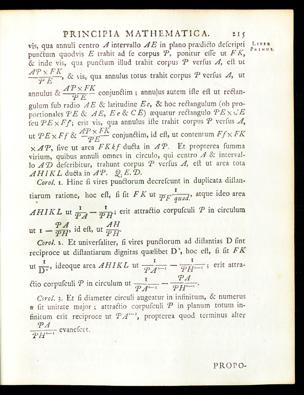 PRINCIPIA MATHEMATICA. 215
LIBER
PRIMUS.
vis, qua annuli centro A intervallo AE in plano prædicto descripti
punctum quodvis E trahit ad se corpus P, ponitur esse ut FK,
& inde vis, qua punctum illud trahit corpus P versus A, est ut
AP × FK / PE, & vis, qua annulus totus trahit corpus P versus A, ut
annulus & AP × FK / PE conjunctim; annulus autem iste est ut rectan-
gulum sub radio AE & latitudine Ee, & hoc rectangulum (ob pro-
portionales PE & AE, Ee & CE) æquatur rectangulo PE × CE
seu PE × Ff; erit vis, qua annulus iste trahit corpus P versus A,
ut PE × Ff & AP × FK / PE conjunctim, id est, ut contentum Ff × FK
× AP, sive ut area FKkf ducta in AP. Et propterea summa
virium, quibus annuli omnes in circulo, qui centro A & interval-
lo AD describitur, trahunt corpus P versus A, est ut area tota
AHIKL ducta in AP. Q.E.D.
Corol. 1. Hinc si vires punctorum decrescunt in duplicata distan-
tiarum ratione, hoc est, si sit FK ut 1 / PF quad., atque ideo area
AHIKL ut 1 / PA − 1 / PH; erit attractio corpusculi P in circulum
ut 1 − PA / PH, id est, ut AH / PH.
Corol. 2. Et universaliter, si vires punctorum ad distantias D sint
reciproce ut distantiarum dignitas quælibet Dⁿ, hoc est, si sit FK
ut 1 / Dⁿ, ideoque area AHIKL ut 1 / PAⁿ⁻¹ − 1 / PHⁿ⁻¹; erit attra-
ctio corpusculi P in circulum ut 1 / PAⁿ⁻² − PA / PHⁿ⁻¹.
Corol. 3. Et si diameter circuli augeatur in infinitum, & numerus
n sit unitate major; attractio corpusculi P in planum totum in-
finitum erit reciproce ut PAⁿ⁻², propterea quod terminus alter
PA / PHⁿ⁻¹ evanescet.
PROPO-